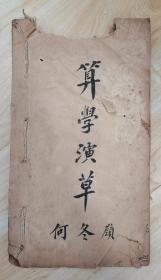 算學演草
何冬嶺